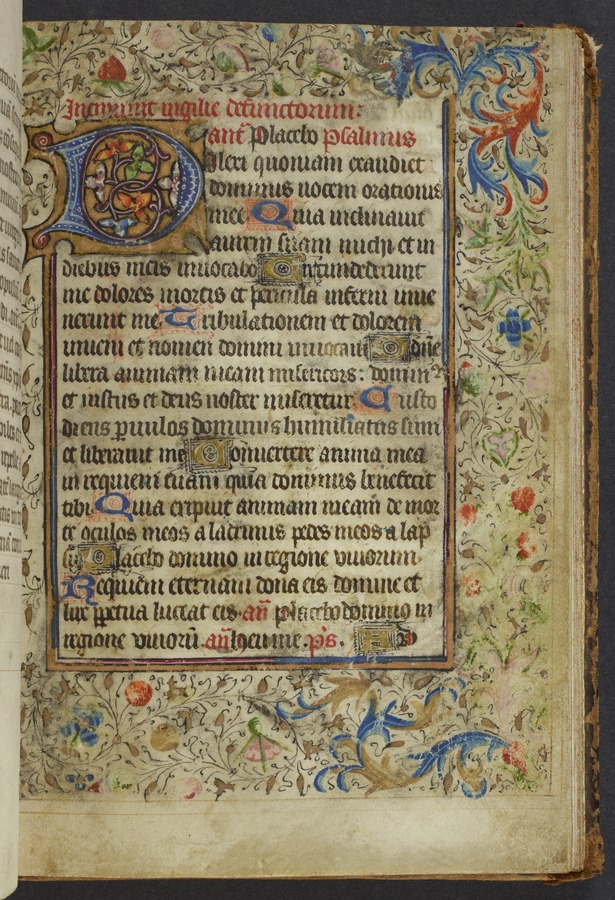 Incipiunt vigilie defunctorum:
añt Placebo psalmus
Dilexi quoniam exaudiet
dominus vocem orationis
mee Quia inclinavit
aurem suam michi et in
diebus meis invocabo Circundederunt
me dolores mortis et pericula inferni inve
nerunt me Tribulationem et dolorem
inveni et nomen domini invocavi O dñe
libera animam meam misericors dominus
et iustus et deus noster miseretur Custo
diens pvulos dominus humiliatus sum
et liberavit me Convertere anima mea
in requiem tuam quia dominus benefecit
tibi Quia eripuit animam meam de mor
te oculos meos a lacrimis pedes meos a lap
su Placebo domino in regione vivorum
Requiem eternam dona eis domine et
lux ppetua luceat eis añ placebo domino in
regione vivorū añ heu me ps